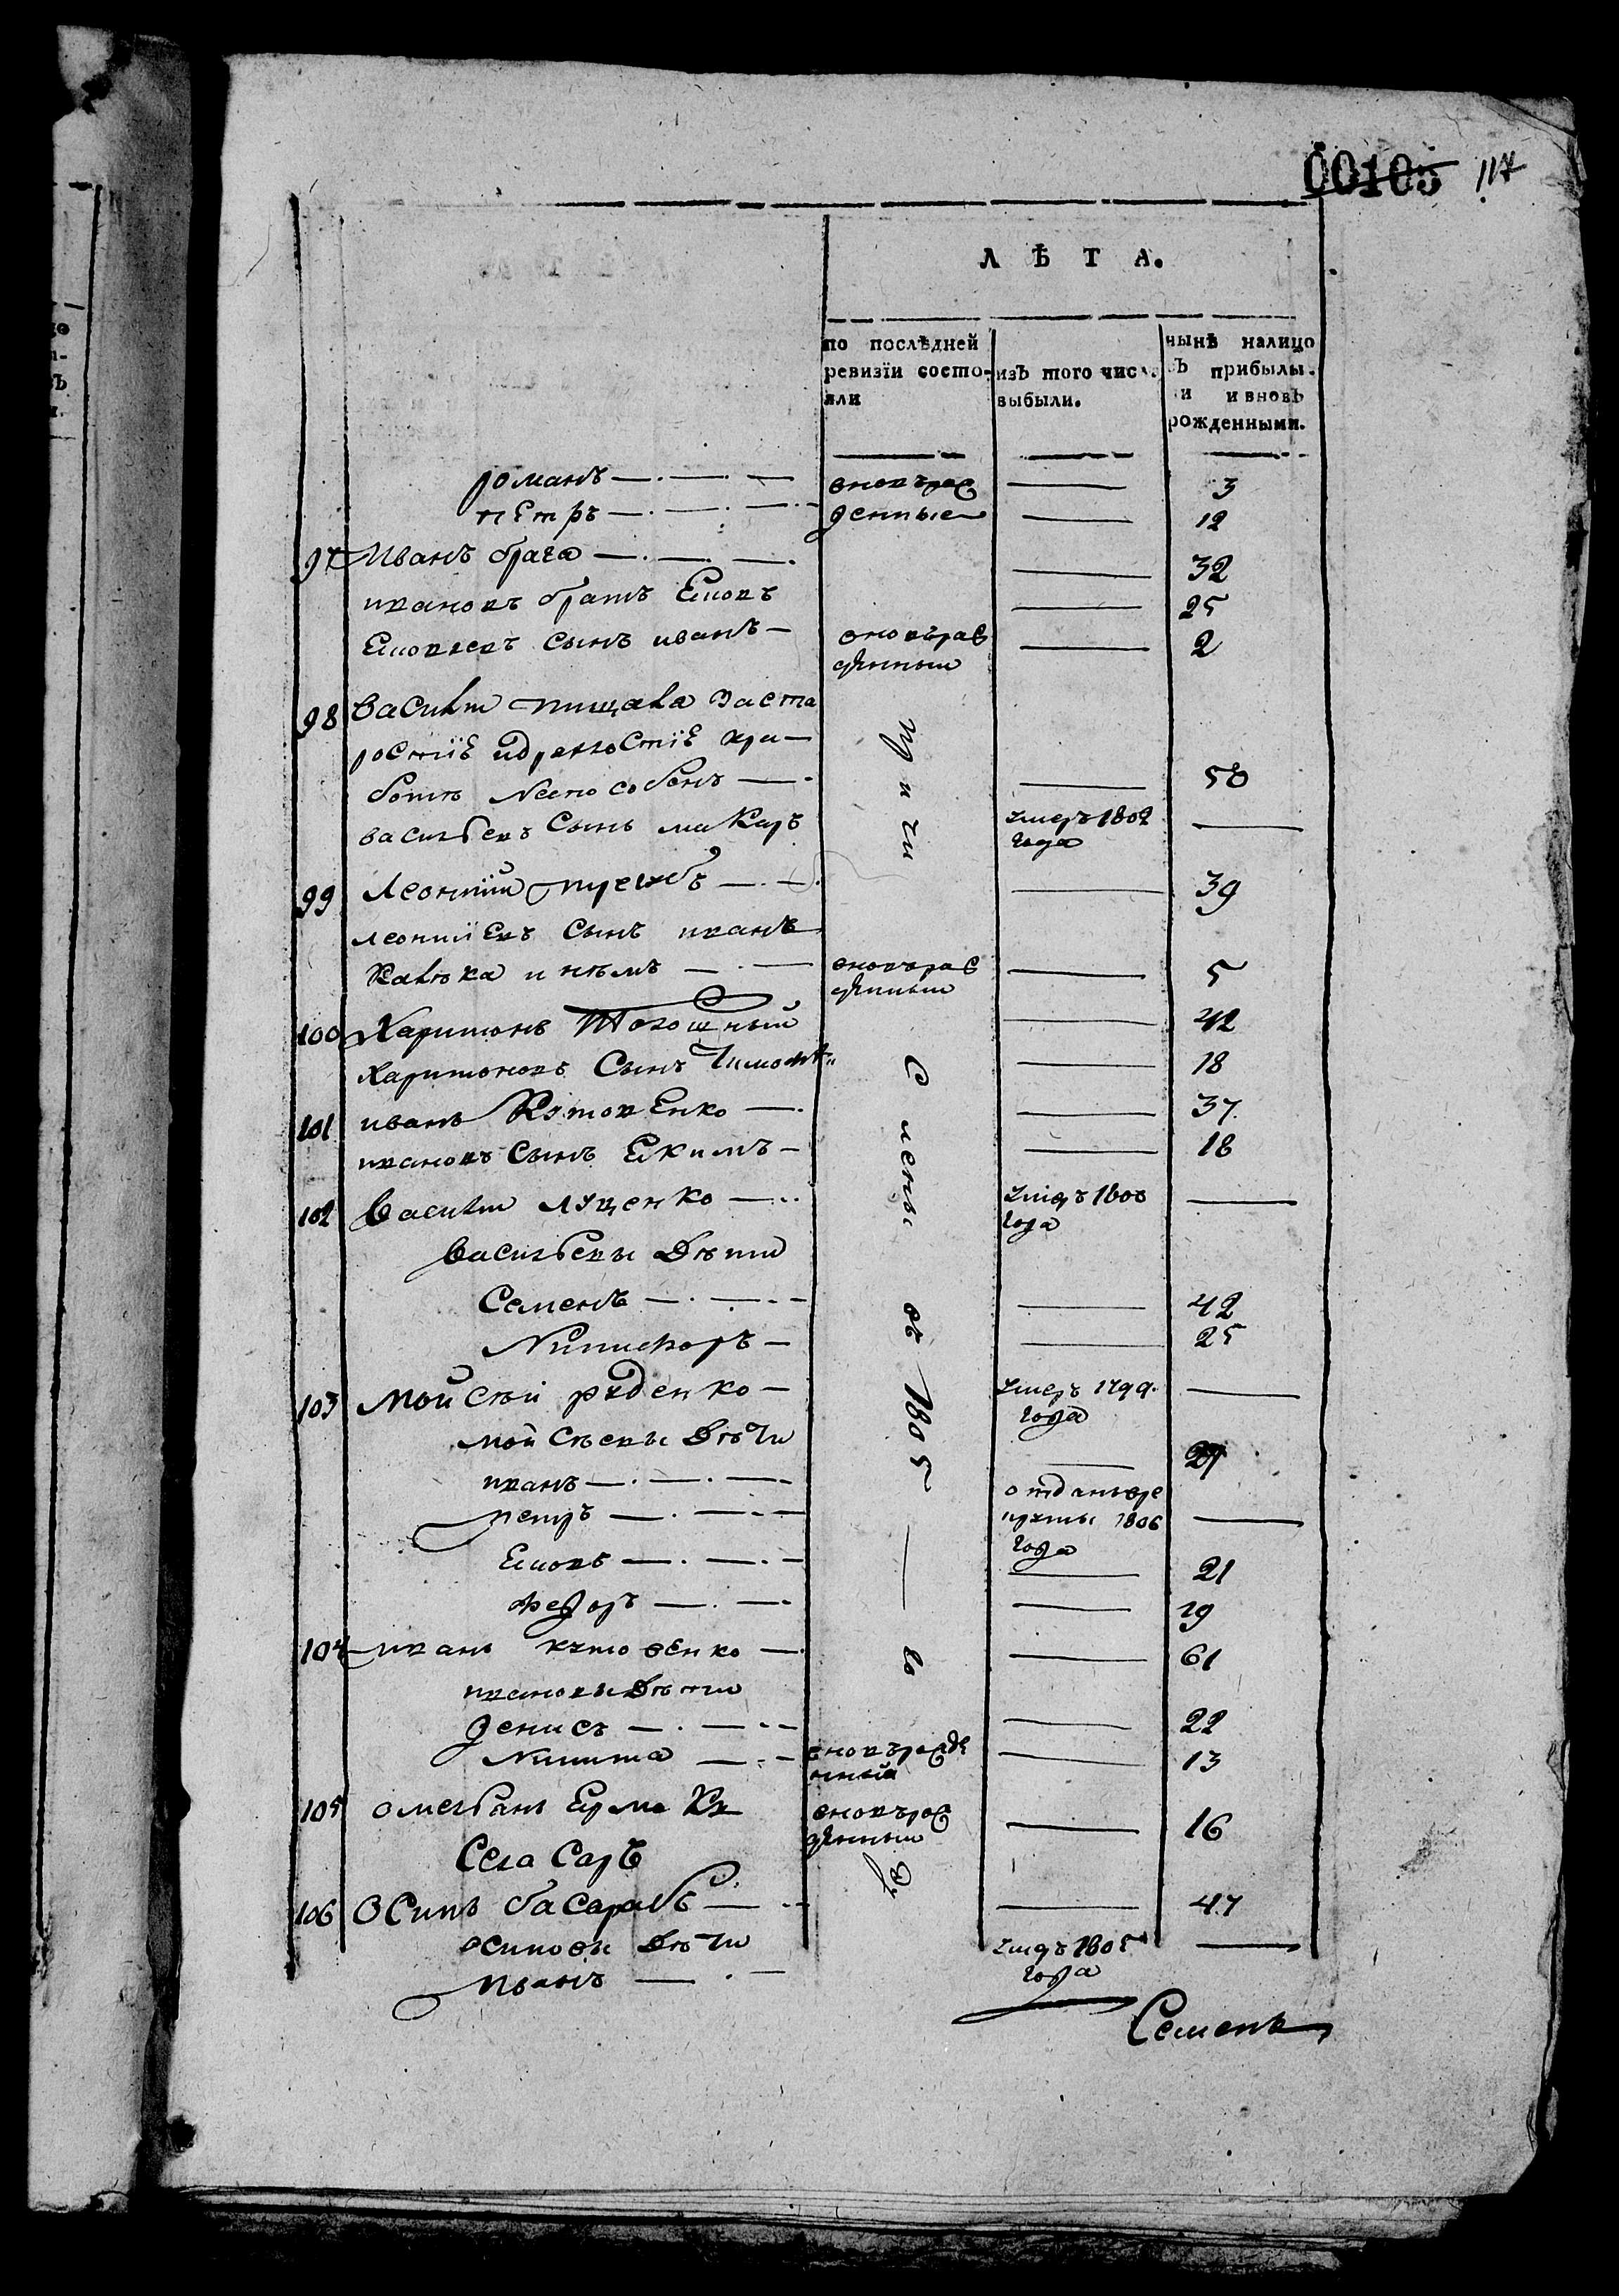 00105 117
ЛѢТА.
по послѣдней ревизїи состо-
яли
изъ того числ.
выбыли.
нынѣ налицо
съ прибылы.
и и вновь
рожденными.
романъ — вновърож — 3
пЕтръ — денные — 12
97 Иванъ брага — 32
ивановъ братъ Еиовъ — 25
Еиовлевъ сынъ иванъ — вновърож — 2
денный
98 Василий пищала за ста
ростїЕ идряхлостїЕ кра
ботѣ неспособенъ — 50
васильевъ Сынъ макаръ умеръ 1802 —
года
99 Леонтий — 39
леонтїЕвъ Сынъ иванъ
Калѣка и нѣмъ — вновърож — 5
денный
100 Харитонъ — 42
Харитоновъ Сынъ Тимофѣй — 18
101 иванъ — 37
ивановъ Сынъ Екимъ — 18
102 Василий луценко — умеръ 1808 —
года
Васильевы Дѣти
Семенъ — 42
Никифоръ — 25
103 Мойсѣй руденко — умеръ 1799 —
года
мойсѣевы Дѣти
иванъ — 27
петръ — отданъвре
круты 1806 —
года
Еиовъ — 21
федоръ — 19
104 иванъ кутовЕнко — 61
ивановы Дѣти
денисъ — 22
Никита — вновърожде — 13
нный
105 омельянъ Ермак вновърож — 16
денный
Села Саръ
106 Осипъ басарабъ — 47
осиповы Дѣти умеръ 1805 —
иванъ — года
Семенъ